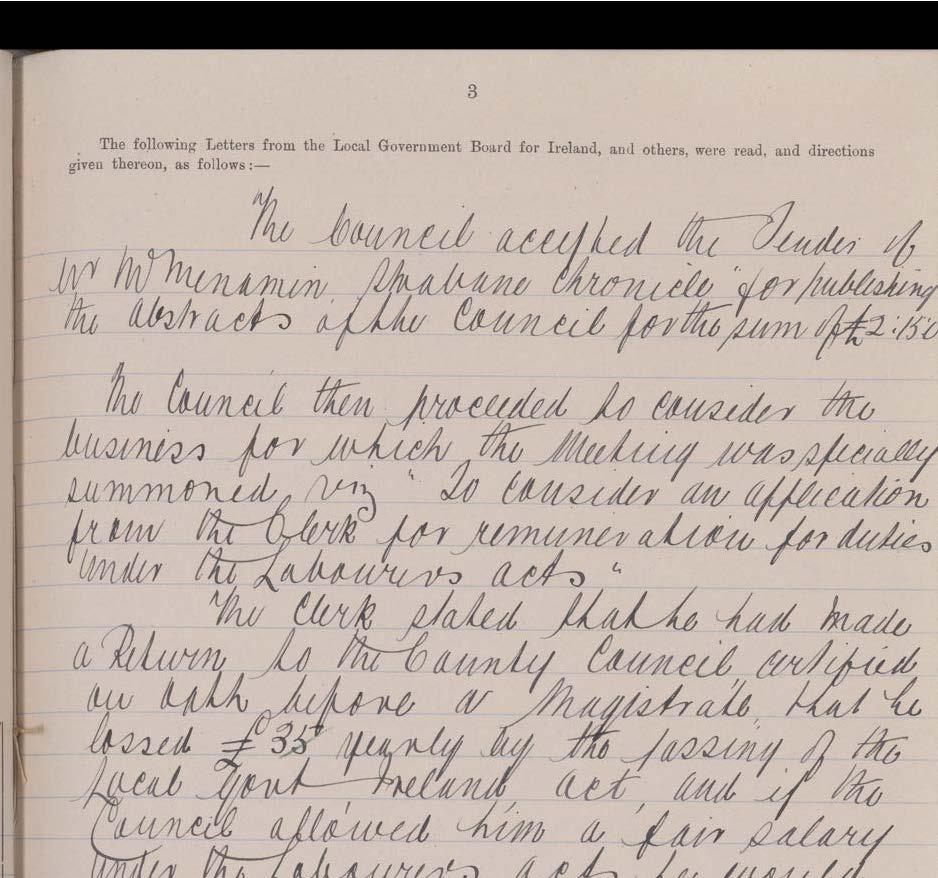 3
The following Letters from the Local Government Board for Ireland, and others, were read, and directions
given thereon, as follows:—
The Council accepted the Tender of
Mr McMenamin, Strabane Chronicle" for publishing
the abstracts of the Council for the sum of £2:15:0
The Council then proceeded to consider the
business for which the Meeting was specially
summoned, viz " To consider an application
from the Clerk for remuneration for duties
under the Labourers acts "
The Clerk stated that he had made
a Return to the County Council, certified
on oath before a Magistrate, that he
lossed £35 yearly by the passing of the
Local Govt Ireland act, and if the
Council allowed him a fair salary
under the Labourers acts he would